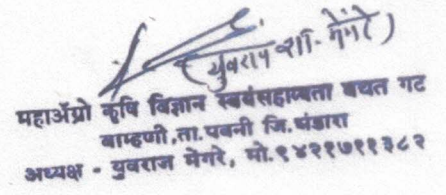 (युवराज शा. मेंगरे)
महाॲग्रो कृषि विज्ञान स्वयंसहाय्यता बचत गट
बाम्हणी,ता.पवनी जि.भंडारा
अध्यक्ष - युवराज मेंगरे, मो.९४२१७११३८२